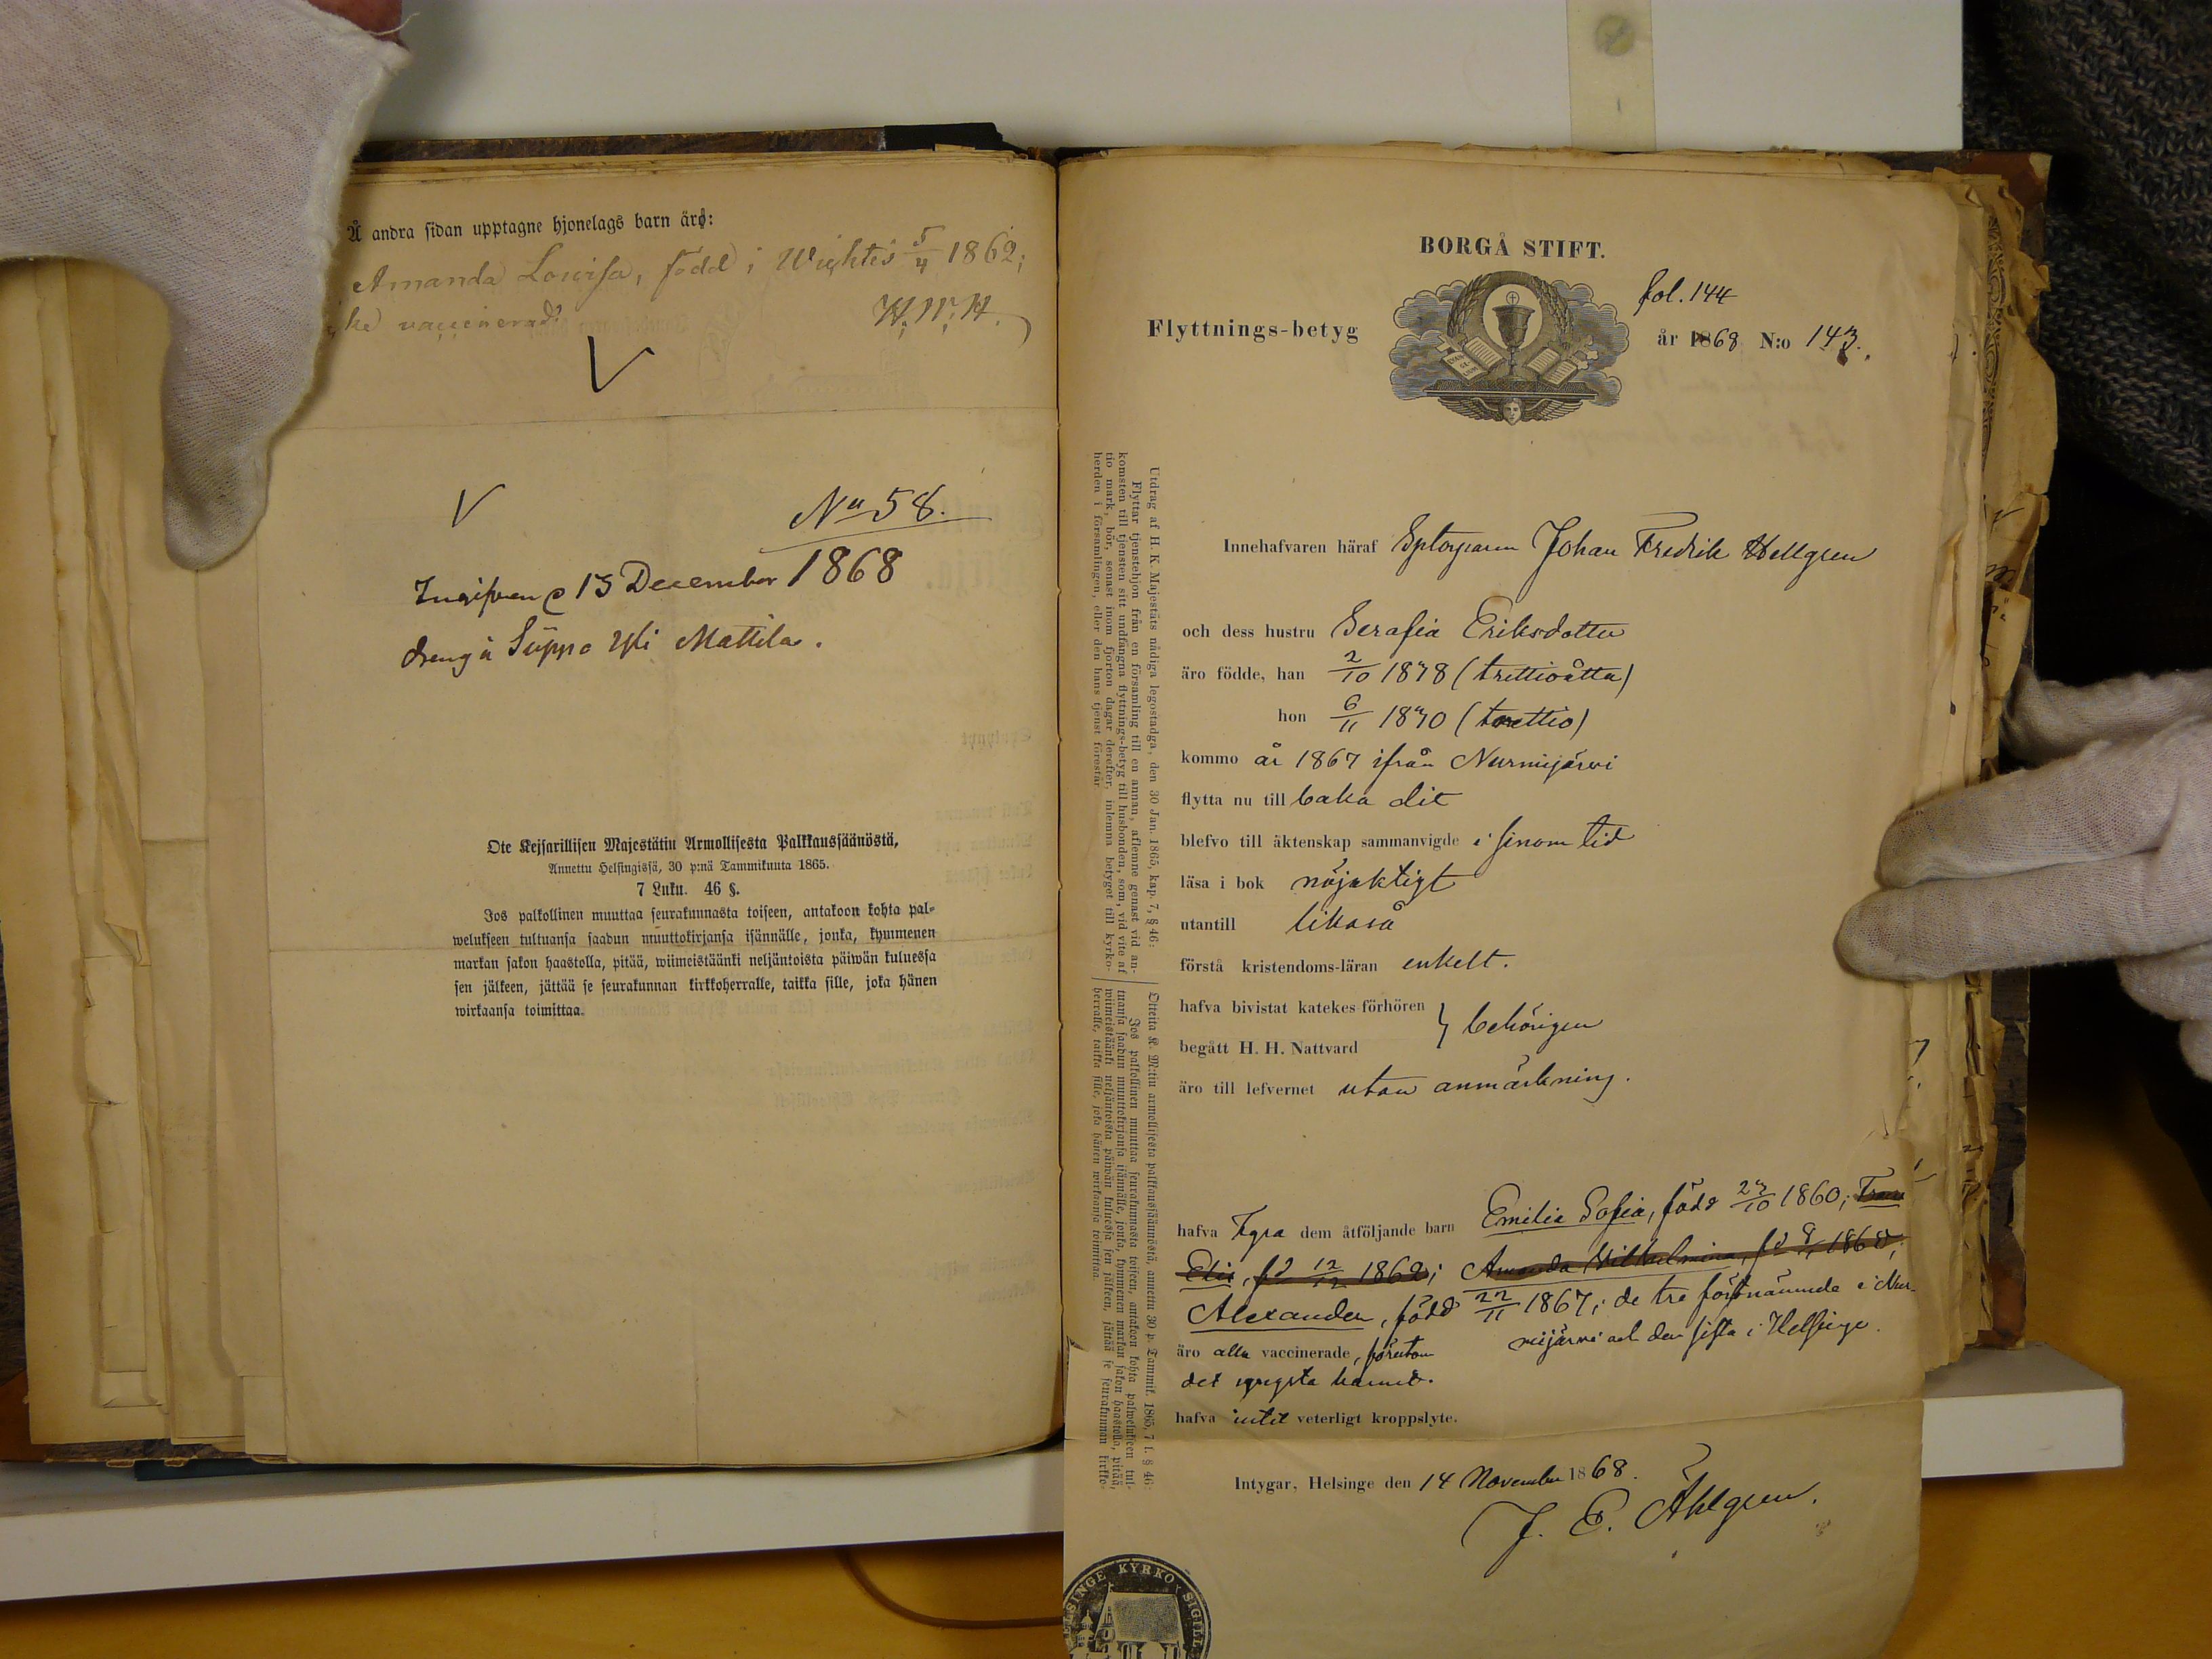 Å andra sidan upptagne hjonelags barn äro:
Amanda Lovisa, född i Wichtis 5/4 1862;
vaccinerad.
H. W. H.
No 58.
Ingifven d 13 December 1868
dräng å Suppo Yli Mattila.
Ote Keisarillisen Majestätin Armollisesta Palkkaussäänöstä,
Annettu Helsingissä, 30 p:nä Tammikuuta 1865.
7 Luku. 46 §.
Jos palkollinen muuttaa seurakunnasta toiseen, antakoon kohta pal-
welukseen tultuansa saadun muuttokirjansa isännälle, jonka, kymmenen
markan sakon haastolla, pitää, wiimeistäänki neljäntoista päiwän kuluessa
sen jälkeen, jättää se seurakunnan kirkkoherralle, taikka sille, joka hänen
wirkaansa toimittaa.
BORGÅ STIFT.
fol. 144
Flyttnings-betyg
år 1868 N:o 143.
Utdrag af H. K. Majestäts nådiga legostadga, den 30 Jan. 1865, kap. 7, § 46:
Flyttar tjenstehjon från en församling till en annan, aflemne genast vid an-
komsten till tjensten sitt undfångna flyttnings-betyg till husbonden, som, vid vite af
tio mark, bör, senast inom fjorton dagar derefter, inlemna betyget till kyrko-
herden i församlingen, eller den hans tjenst förestår
Otteita K. M:tin armollisesta palkkaussäännöstä, annettu 30 p. Tammik. 1865, 7 l. § 46:
Jos palkollinen muuttaa seurakunnasta toiseen, antakoon kohta palwelukseen tul-
tuansa saadun muuttokirjansa isännälle, jonka, kymmenen markan sakon haastolla, pitää,
wiimeistäänki neljäntoista päiwän kuluessa sen jälkeen, jättää se seurakunnan kirkko-
herralle, taikka sille, joka hänen wirkaansa toimittaa.
Innehafvaren häraf Sptorparen Johan Fredrik Hellgren
och dess hustru Serafia Eriksdotter
äro födde, han 2/10 1838 (trettioåtta)
hon 6/11 1830 (trettio)
kommo år 1867 ifrån Nurmijärvi
flytta nu till baka dit
blefvo till äktenskap sammanvigde i sinom tid
läsa i bok nöjaktigt
utantill likaså
förstå kristendoms-läran enkelt.
hafva bivistat katekes-förhören
begått H. H. Nattvard } behörigen
äro till lefvernet utan anmärkning.
hafva fyra dem åtföljande barn Emilia Sofia, född 23/10 1860; Frans
Elis, fd 12/12 1862; Amanda Vilhelmina, fd 9/1 1865,
Alexander, född 22/11 1867; de tre förstnämnda i Nur-
mijärvi och den sista i Helsinge.
äro alla vaccinerade, förutom
det yngsta barnet.
hafva intet veterligt kroppslyte.
Intygar, Helsinge den 14 November 1868.
J. E. Åhlgren.
HELSINGE KYRKO SIGILL